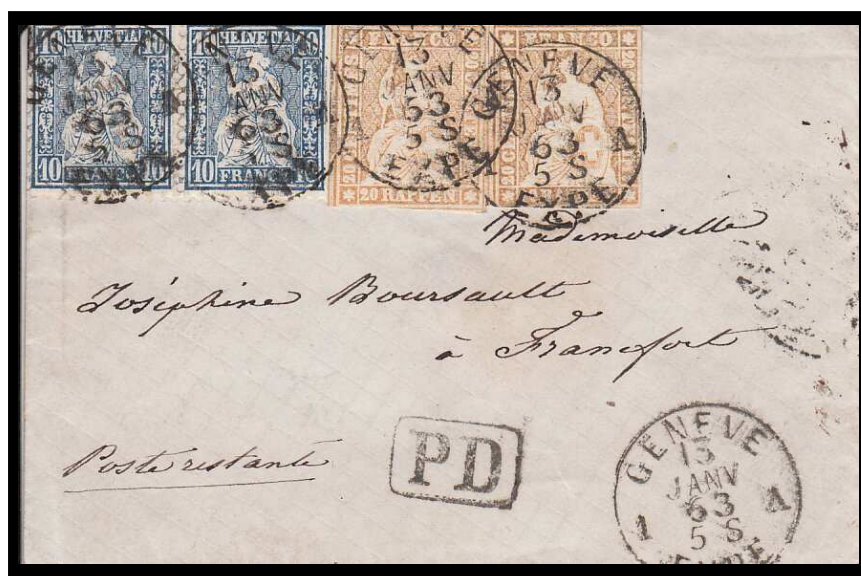 10 HELVETIA 10
10 FRANCO 10
10 HELVETIA 10
10 FRANCO
FRANCO
20 RAPPEN
FRANCO
GENEVE
13
JANV
63
5 S
GENEVE
13
JANV
63
5 S
EXPE
GENEVE
13
JANV
63
5 S
EXPE
1 1
Mademoiselle
Joséphine Boursault
à Francfort
Poste restante
PD
GENEVE
13
JANV
1 63 1
5 S
EXPE